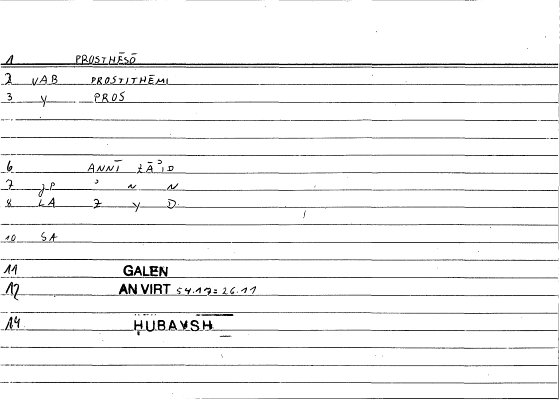 1 PROSTHĒSŌ
2 VAB PROSTITHĒMI
3 Y PROS
6 ANNĪ ZĀʾID
7 JP ʾ N N
8 LA Z Y D
10 SA
11 GALEN
12 AN VIRT 54.17=26.11
14 ḤUBAYSH